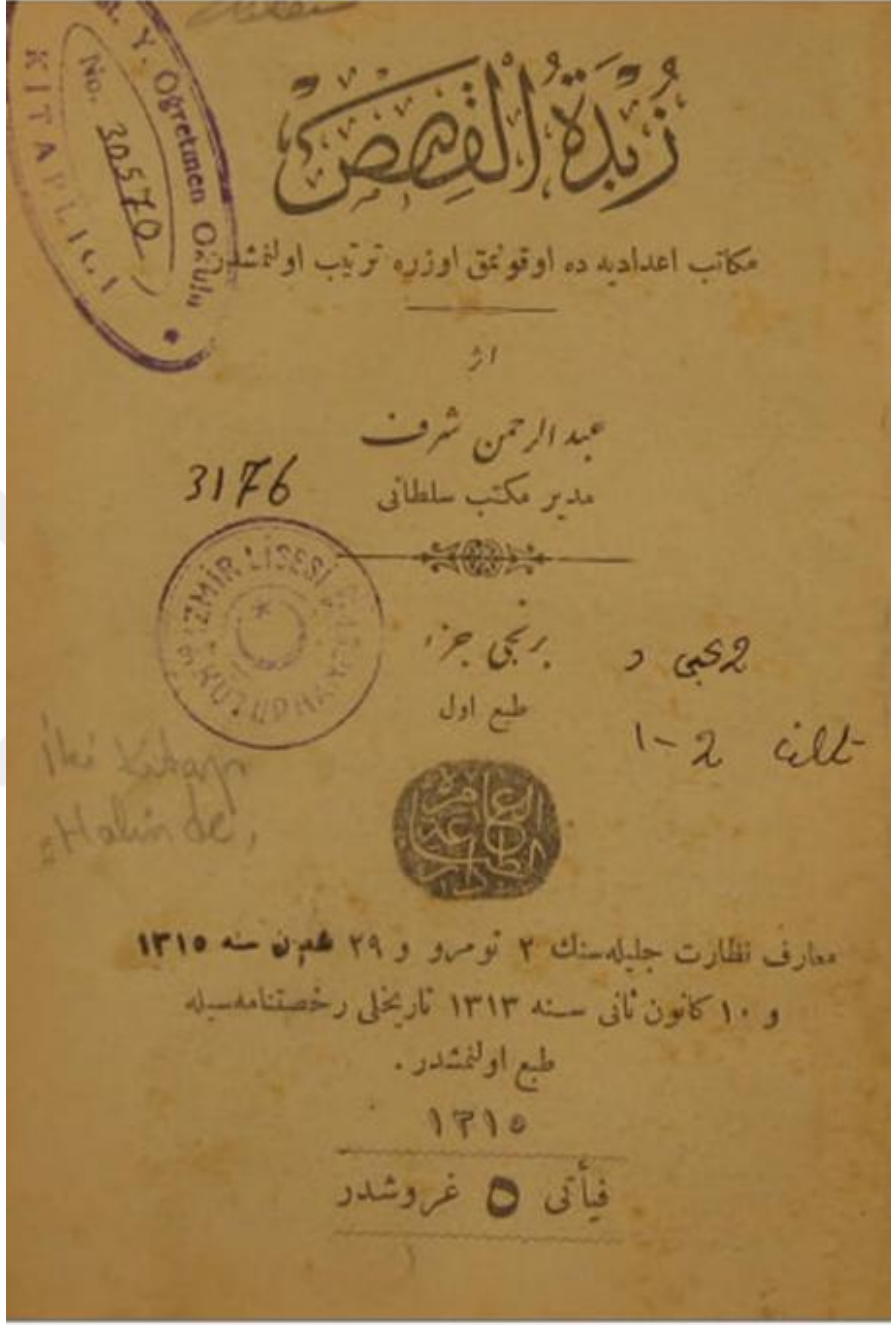 Y. Öğretmen Okulu
No. 30570
KİTAPLIĞI
زُبْدَةُ الْقِصَصْ
مكاتب اعداديه ده اوقونمق اوزره ترتيب اولنمشدر
اثر
عبد الرحمن شرف
مدير مكتب سلطانى
3176
İZMİR LİSESİ
KÜTÜPHANESİ
برنجى جزء
طبع اول
1-2
İki kitap
Halinde,
معارف نظارت جليله‌سنك ٢ نومرو و ٢٩ شعبان سنه ١٣١٥
و ١٠ كانون ثانى سنه ١٣١٣ تاريخلى رخصتنامه‌سيله
طبع اولنمشدر .
١٣١٥
فيأتى ٥ غروشدر